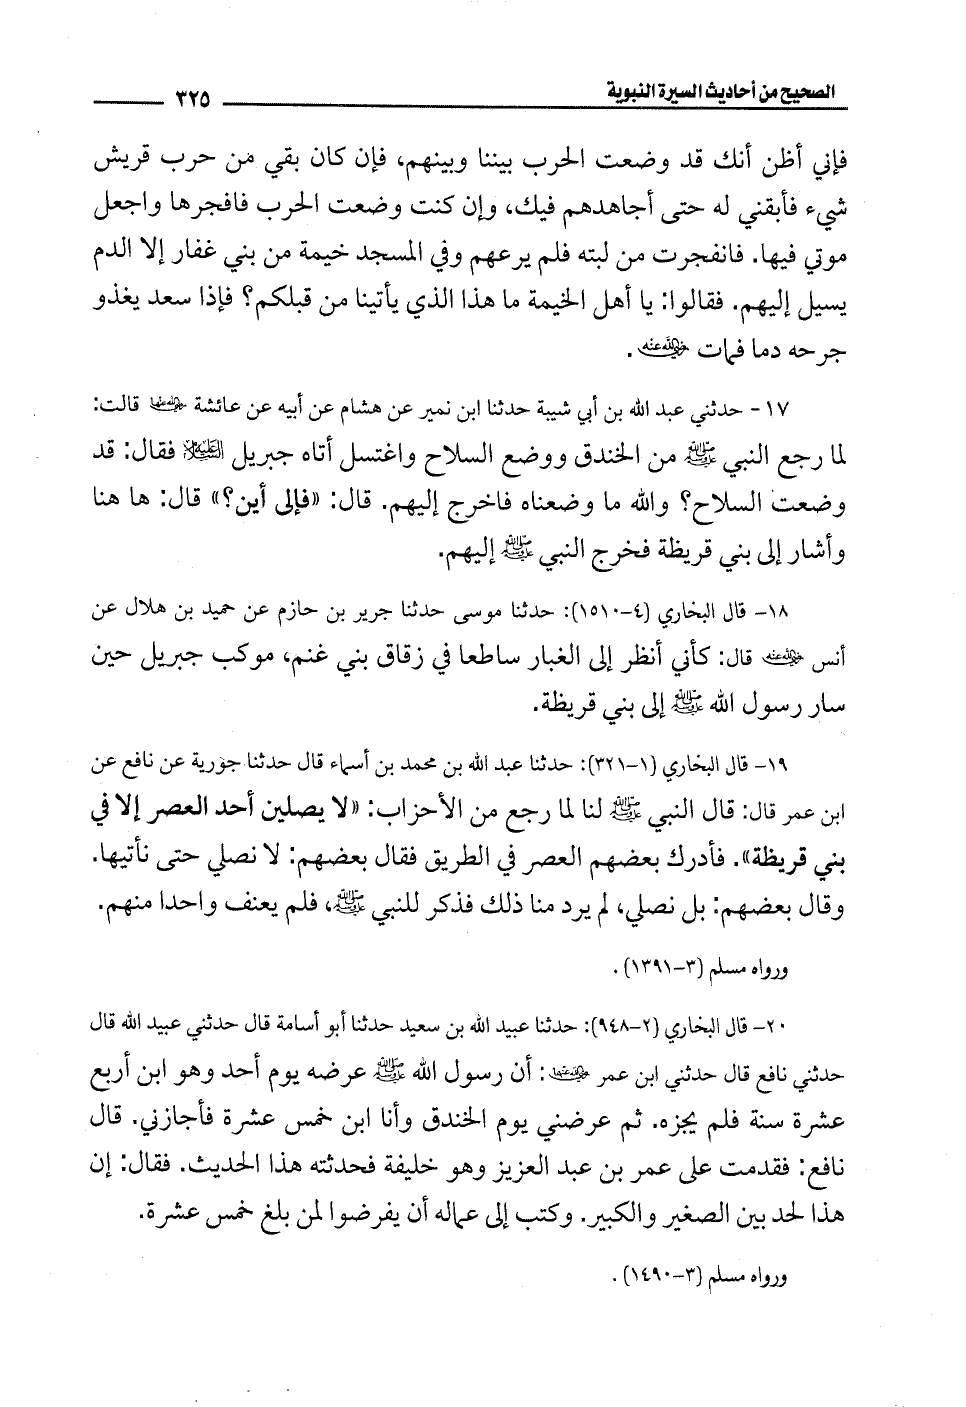 الصحيح من أحاديث السيرة النبوية ٣٢٥
فإني أظن أنك قد وضعت الحرب بيننا وبينهم، فإن كان بقي من حرب قريش
شيء فأبقني له حتى أجاهدهم فيك، وإن كنت وضعت الحرب فافجرها واجعل
موتي فيها. فانفجرت من لبته فلم يرعهم وفي المسجد خيمة من بني غفار إلا الدم
يسيل إليهم. فقالوا: يا أهل الخيمة ما هذا الذي يأتينا من قبلكم؟ فإذا سعد يغذو
جرحه دما فمات رضي الله عنه.
١٧- حدثني عبد الله بن أبي شيبة حدثنا ابن نمير عن هشام عن أبيه عن عائشة رضي الله عنها قالت:
لما رجع النبي ﷺ من الخندق ووضع السلاح واغتسل أتاه جبريل عليه السلام فقال: قد
وضعت السلاح؟ والله ما وضعناه فاخرج إليهم. قال: «فإلى أين؟» قال: ها هنا
وأشار إلى بني قريظة فخرج النبي ﷺ إليهم.
١٨- قال البخاري (٤-١٥١٠): حدثنا موسى حدثنا جرير بن حازم عن حميد بن هلال عن
أنس رضي الله عنه قال: كأني أنظر إلى الغبار ساطعا في زقاق بني غنم، موكب جبريل حين
سار رسول الله ﷺ إلى بني قريظة.
١٩- قال البخاري (١-٣٢١): حدثنا عبد الله بن محمد بن أسماء قال حدثنا جورية عن نافع عن
ابن عمر قال: قال النبي ﷺ لنا لما رجع من الأحزاب: «لا يصلين أحد العصر إلا في
بني قريظة». فأدرك بعضهم العصر في الطريق فقال بعضهم: لا نصلي حتى نأتيها.
وقال بعضهم: بل نصلي، لم يرد منا ذلك فذكر للنبي ﷺ، فلم يعنف واحدا منهم.
ورواه مسلم (٣-١٣٩١).
٢٠- قال البخاري (٢-٩٤٨): حدثنا عبيد الله بن سعيد حدثنا أبو أسامة قال حدثني عبيد الله قال
حدثني نافع قال حدثني ابن عمر رضي الله عنهما: أن رسول الله ﷺ عرضه يوم أحد وهو ابن أربع
عشرة سنة فلم يجزه. ثم عرضني يوم الخندق وأنا ابن خمس عشرة فأجازني. قال
نافع: فقدمت على عمر بن عبد العزيز وهو خليفة فحدثته هذا الحديث. فقال: إن
هذا لحد بين الصغير والكبير. وكتب إلى عماله أن يفرضوا لمن بلغ خمس عشرة.
ورواه مسلم (٣-١٤٩٠).